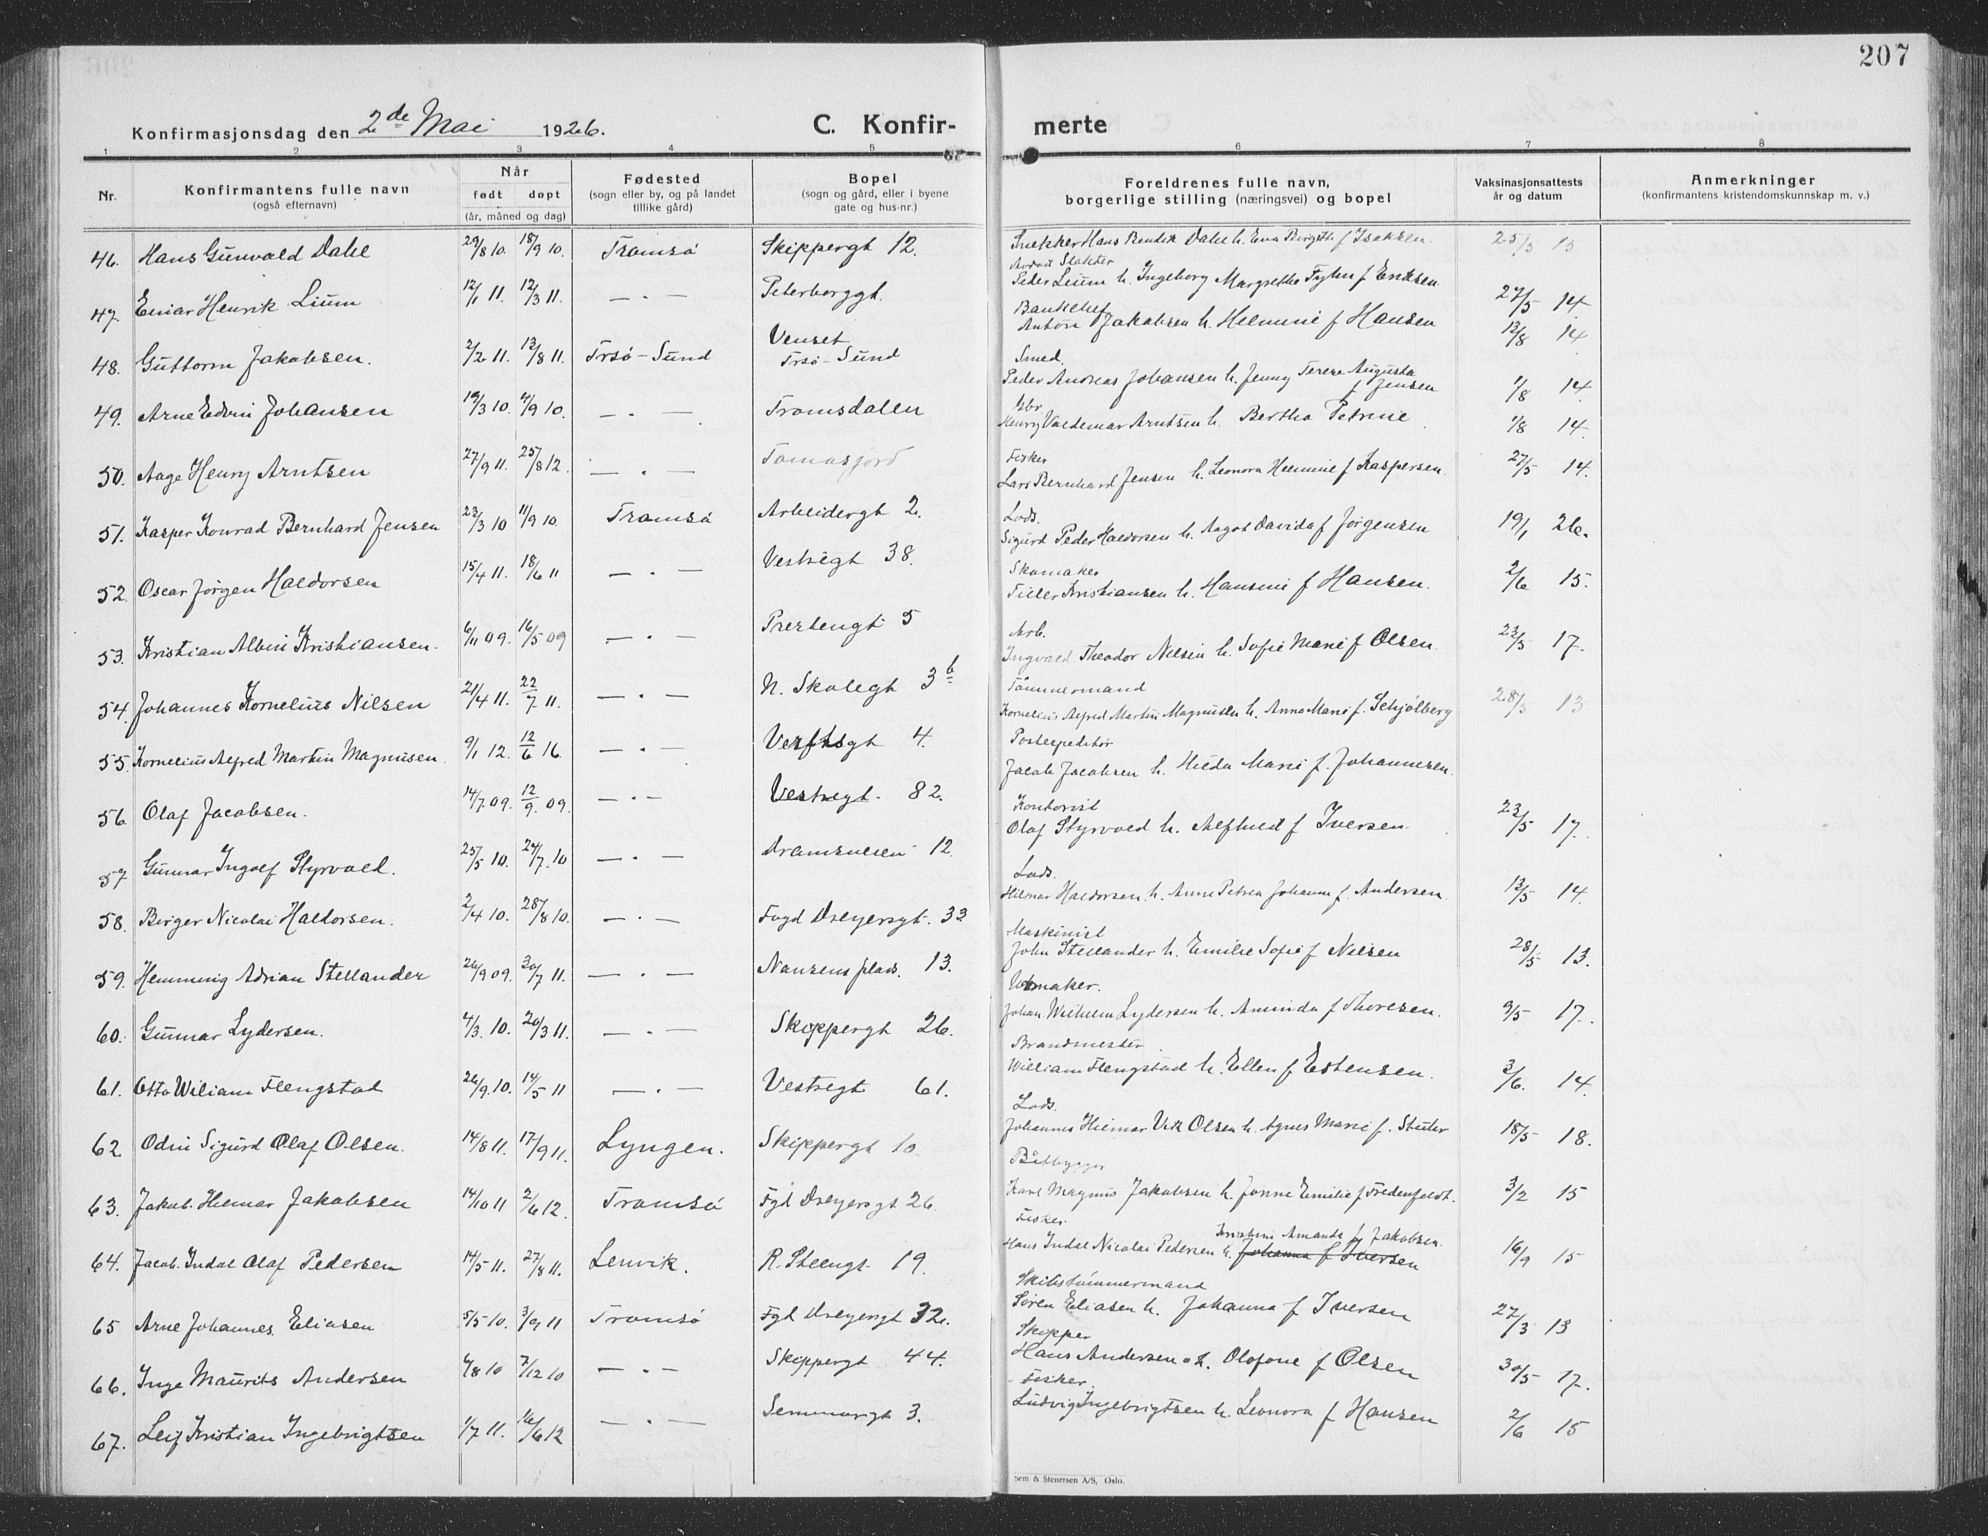 207
Konfirmasjonsdag den 2de Mai 1926.
C. Konfir-
merte
1 2 3 4 5 6 7 8
Nr.
Konfirmantens fulle navn
(også efternavn)
Når
født døpt
(år, måned og dag)
Fødested
(sogn eller by, og på landet
tillike gård)
Bopel
(sogn og gård, eller i byene
gate og hus-nr.)
Foreldrenes fulle navn,
borgerlige stilling (næringsvei) og bopel
Vaksinasjonsattests
år og datum
Anmerkninger
(konfirmantens kristendomskunnskap m. v.)
46. Hans Gunvald Dahl 29/8 10. 18/9 10. Tromsø Skippergt 12.
Snekker Hans Bendik Dahl h. Eva Birgitte f Isaksen. 25/5 13
47. Einar Henrik Lium 12/1 11. 12/3 11. — . — Peterborggt.
Peder Lium h. Ingeborg Margrethe f Eriksen 27/5 14
48. Guttorm Jakobsen. 2/2 11. 13/8 11. Trsø-Sund
Trsø-Sund
Bankchef
Anton Jakobsen h. Helmine f Hansen 12/8 14
49. Arne Edvin Johansen 19/3 10. 4/9 10. — . — Tromsdalen
Smed.
Peder Andreas Johansen h. Jenny Terese Augusta
f Jensen 1/8 14
50. Aage Henry Arntsen 27/9 11. 25/8 12. — . — Tomasjord
Gbr
Henry Valdemar Arntsen h. Bertha Petrine 1/8 14.
51. Kasper Konrad Bernhard Jensen 23/3 10 11/9 10. Tromsø Arbeidergt 2.
Fisker
Lars Bernhard Jensen h. Leonora Helmine f Kaspersen. 27/5 14.
52. Oscar Jørgen Haldorsen 15/4 11. 18/6 11 — . — Vestregt 38.
Lods.
Sigurd Peder Haldorsen h. Aagot Davida f Jørgensen 19/1 26.
53. Kristian Albin Kristiansen. 6/11 09. 16/5 09 — . — Prestengt 5
Skomaker
Tiller Kristiansen h. Hansine f Hansen. 2/6 15.
54. Johannes Kornelius Nilsen 21/4 11. 22/7 11. — . — N. Skolegt 3b
Arb.
Ingvald Theodor Nilsen h. Sofie Marie f Olsen. 23/5 17.
55. Kornelius Alfred Martin Magnusen 9/1 12. 12/6 16. — . — Verftsgt 4.
Tømmermand
Kornelius Alfred Martin Magnusen h. Anna Marie f. Schjølberg 28/5 13
56. Olaf Jacobsen. 14/7. 09. 12/9. 09. — . — Vestregt. 82.
Postexpeditør
Jacob Jacobsen h. Hilda Marie f. Johannesen.
57 Gunnar Ingolf Styrvold. 25/5 10. 24/7. 10 — . — Dramsveien 12
Kontorist
Olaf Styrvold h. Alfhild f Iversen. 23/5 17.
58. Birger Nicolai Haldorsen. 2/4 10. 28/8 10. — . — Fogd Dreyersgt. 33
Lods.
Hilmar Haldorsen. h. Anne Petrea Johanne f. Andersen. 13/5 14.
59. Hemming Adrian Stellander 26/9 09. 30/7 11. — . — Nansens plads. 13.
Maskinist
John Stellander h. Emilie Sofie f Nilsen 28/5 13.
60. Gunnar Lydersen. 4/3. 10. 20/3 11. — . — Skippergt 26.
Urmaker.
Johan Wilhelm Lydersen h. Aminda f Thoresen. 9/5 17.
61. Otto Wiliam Flengstad 26/9. 10. 14/5 11 — . — Vestregt 61.
Brandmester
William Flengstad h. Ellen f Estensen. 3/6. 14
62. Odin Sigurd Olaf Olsen. 14/8 11. 17/9 11. Lyngen. Skippergt 10.
Lods.
Johannes Hilmar Olsen h. Agnes Marie f. 18/5 18.
63. Jakob Hilmar Jakobsen 14/10 11 2/6 12. Tromsø Fgd Dreyersgt 26.
Båtbygger
Karl Magnus Jakobsen h. Jonne Emilie f Fredenfeldt. 3/2 15
64. Jacob Indal Olaf Pedersen 14/5 11. 27/8 11. Lenvik. R. Steengt 19.
Fisker.
Kristine Amanda f Jakobsen.
Hans Indal Nicolai Pedersen h. Johanna f Iversen 16/9 15
65 Arne Johannes Eliasen 5/5 10. 3/9 11 Tromsø Fgd Dreyersgt 32.
Skibstømmermand
Søren Eliasen h. Johanna f Iversen 27/3 13
66. Inge Maurits Andersen 4/8 10 7/12 10 — . — Skippergt 44.
Skipper
Hans Andersen h. Olofone f Olsen 30/5 17.
67. Leif Kristian Ingebrigtsen 1/7 11. 16/6 12 — . — Seminarigt 3.
Fisker.
Ludvig Ingebrigtsen h. Leonora f Hansen 2/6 15
Sem & Stenersen A/S, Oslo.